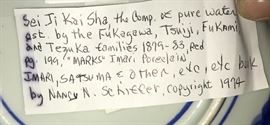 Sei Ji Kai Sha, the Comp. of pure water
est. by the Fukagawa, Tsuji, Fukami
and Tezuka families 1879-83, Red
pg. 194, "MARKS" Imari Porcelain
IMARI, SATSUMA & other, etc, etc
by Nancy N. Schiffer, copyright 1994